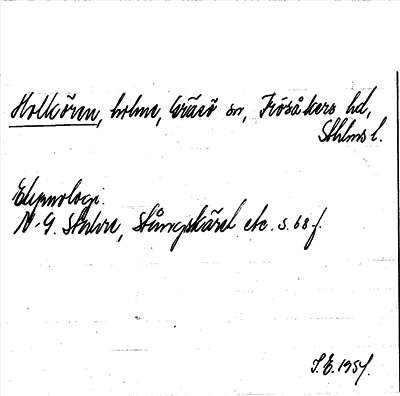 Holkören, holme, Gräsö sn, Frösåkers hd,
Sthlms l.
Etymologi.
N.-G. Stahre, Stångskäret etc. s. 68 f.
S.E. 195